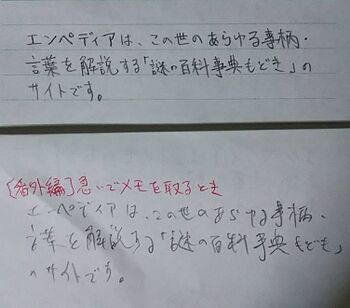 エンペディアは、この世のあらゆる事柄・
言葉を解説する「謎の百科事典もどき」の
サイトです。
[番外編]急いでメモを取るとき
エンペディアは、この世のあらゆる事柄・
言葉を解説する「謎の百科事典もどき」
のサイトです。